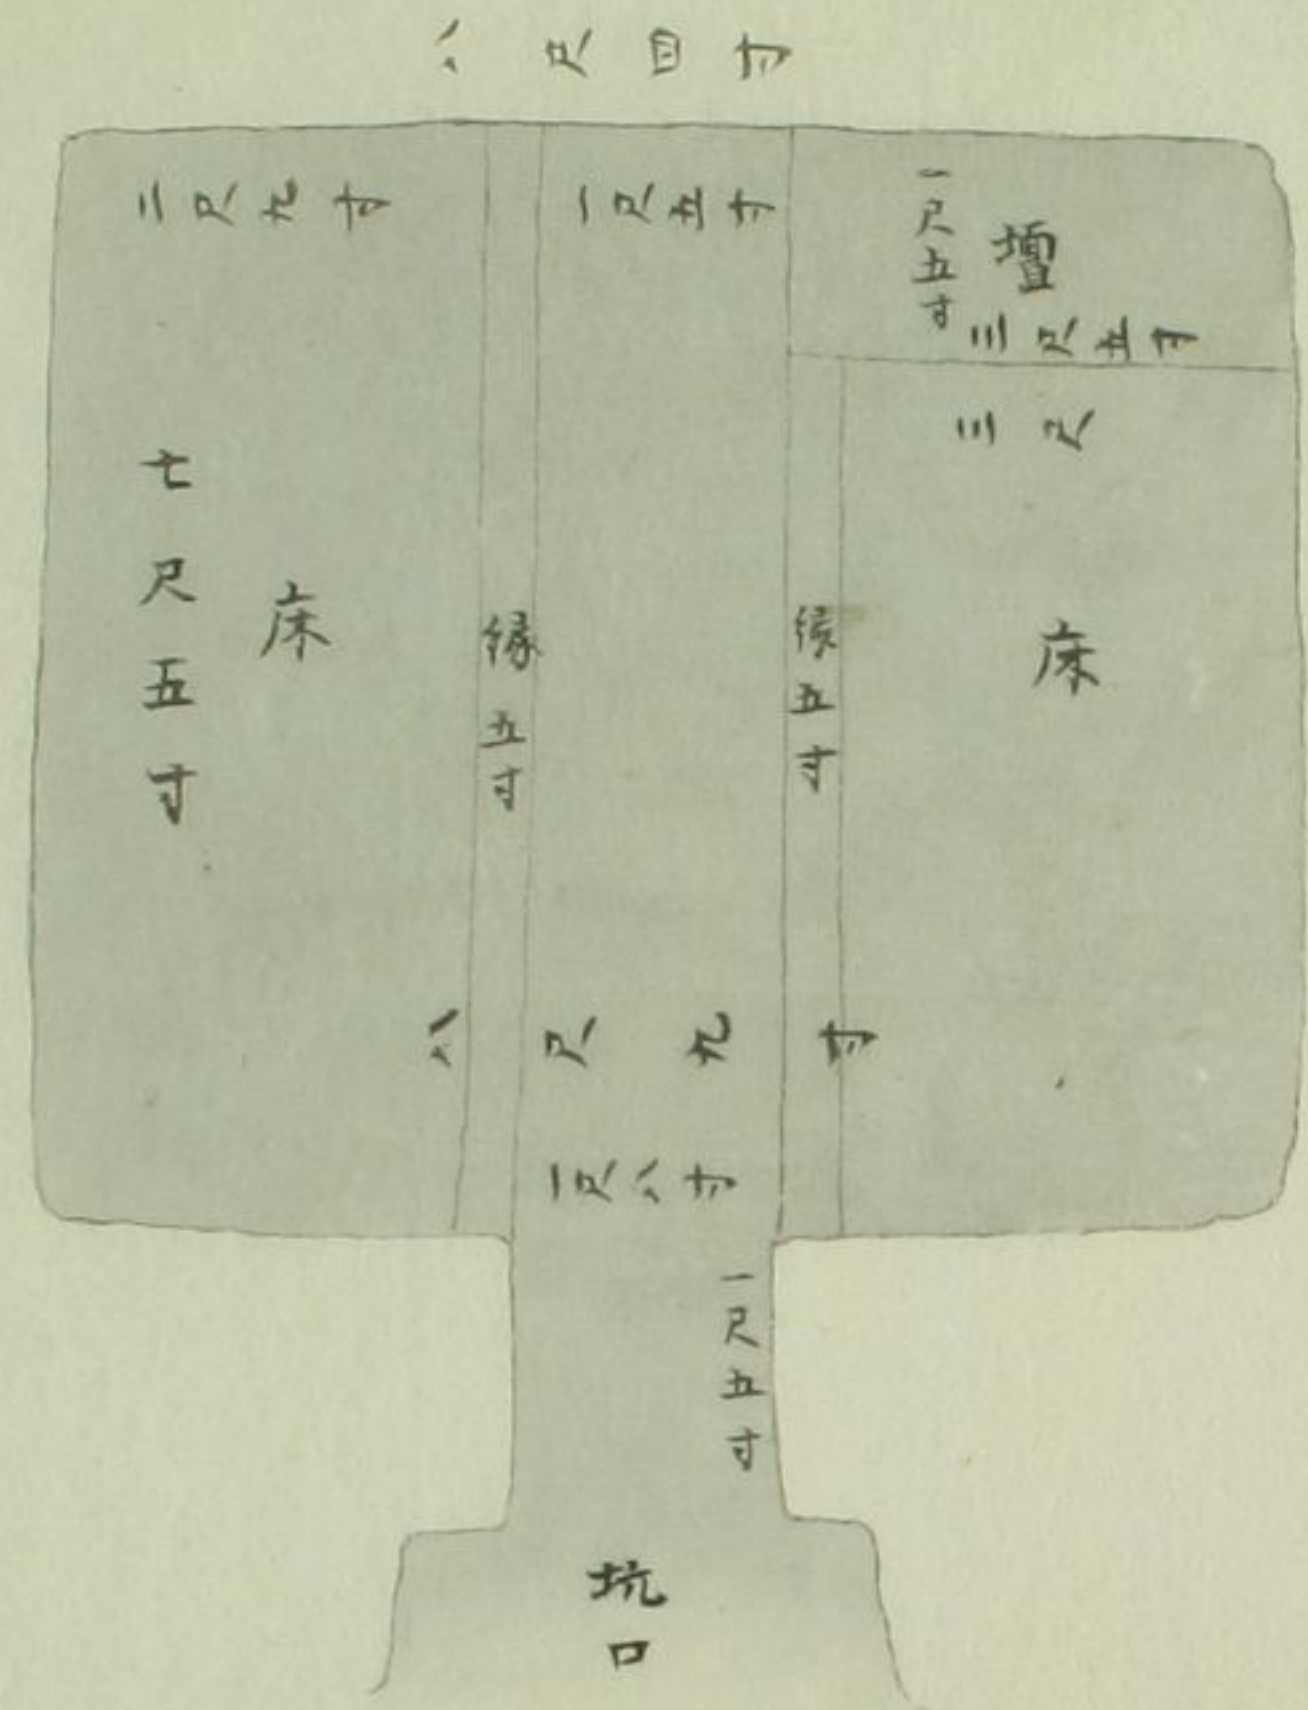 八尺四寸
二尺九寸
一尺五寸
壇
一尺五寸
三尺五寸
三尺
床
七尺五寸
縁五寸
縁五寸
床
八尺九寸
一尺八寸
一尺五寸
坑口